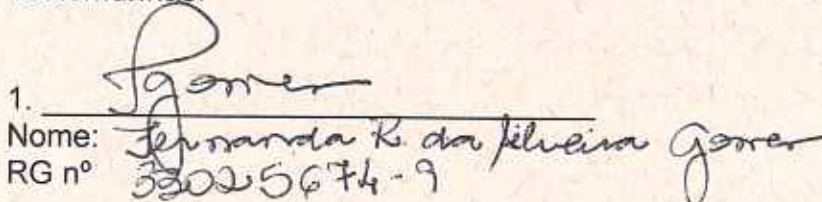 1. FGomes
Nome: Fernanda R. da Silveira Gomes
RG nº 33025674-9